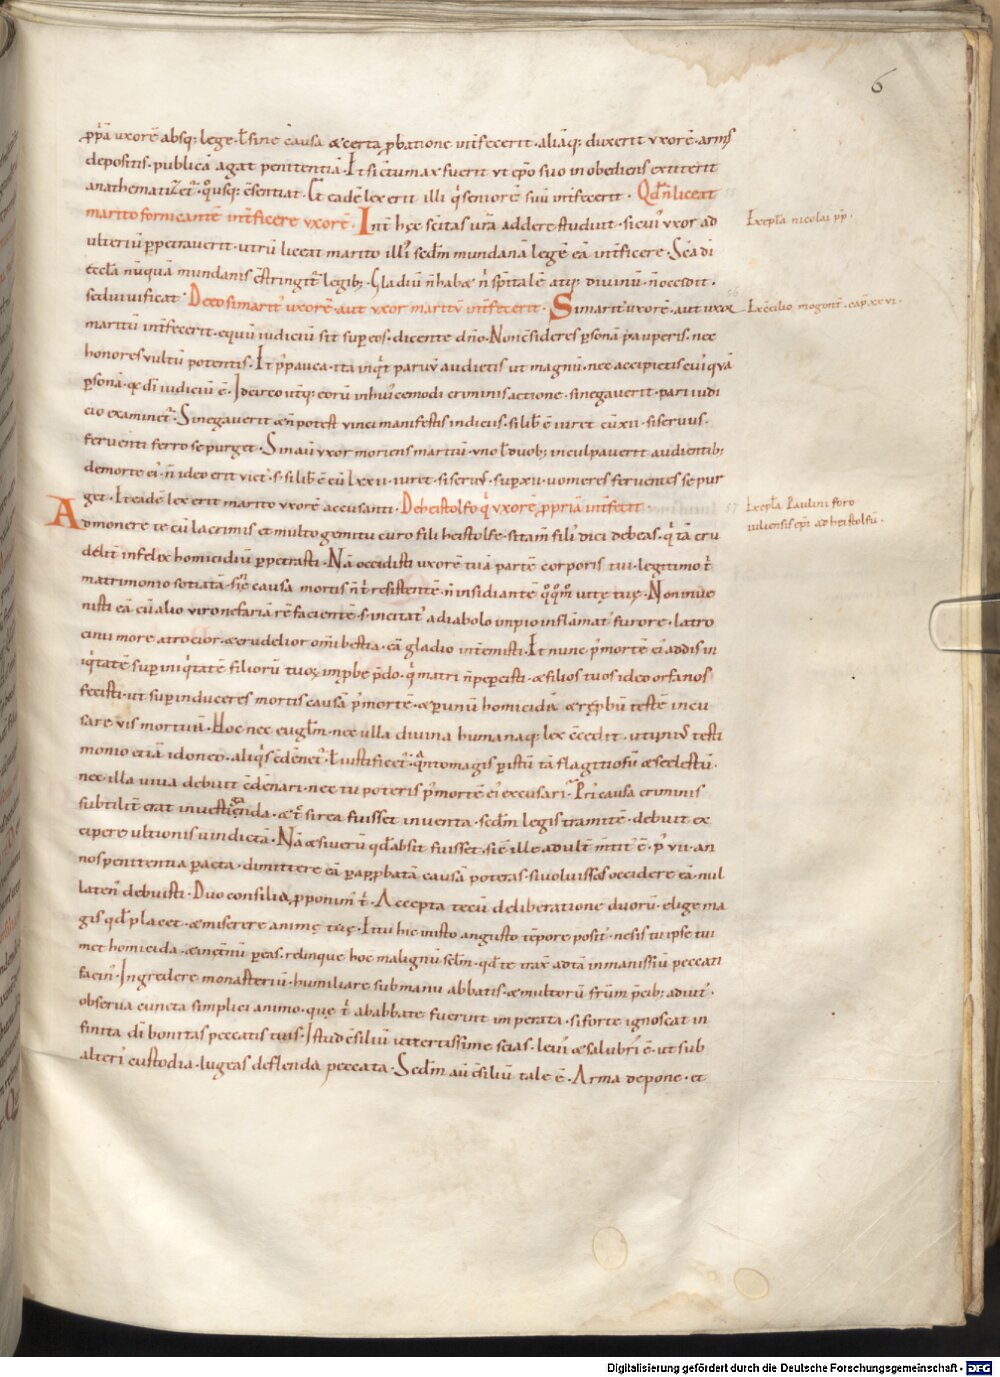 6
pp̄a uxorē absq; lege · ł sine causa & certa p̱batione int̄fecerit · aliāq; duxerit uxorē · armis
depositis · publicā agat penitentiā · Et si c̄tumax fuerit ut ep̄o suo inobediens extiterit
anathematizet᷑ · q̊usq; c̄sentiat · Et eadē lex erit illi q̇ seniorē suū int̄fecerit · Qd̄ n̄ liceat
marito fornicantē int̄ficere uxorē · Int̄ hęc sc̄itas ur̄a addere studuit · si cui᾿ uxor ad
Ex epła nicolai pp̄ ·
ulteriū p̱petrauerit · utrū liceat marito illi᾿ sed̄m mundanā legē eā int̄ficere · Sc̄a di
ęccła nūquā mundanis c̄stringit᷑ legib; · Gladiū n̄ habæ n̄ sp̄italē atq; diuinū · n̄ occidit ·
sed uiuificat · De eo si marit᾿ uxorē · aut uxor maritū int̄fecerit · Si marit᾿ uxorē · aut uxor
Ex c̄cilio mogont̄ · cap̄ · xxvi ·
maritū int̄fecerit · equū iudiciū sit sup eos · dicente dn̄o · Non c̄sideres p̱sonā pauperis · nec
honores uultū potentis · Et p᾿ pauca · ita inq̇t paruū audietis ut magnū · nec accipietis cui᾿quā
p̱sonā · q̇a di iudiciū ē · Idcirco utq; eorū in hui᾿cemodi criminis actione · si negauerit · pari iudi
cio examinet᷑ · Si negauerit & n̄ potest uinci manifestis indiciis · si lib̄ ē iuret cū xii · si seruus ·
feruenti ferro se purget · Sin aū uxor moriens maritū · uno ł duob; inculpauerit audientib;
de morte ei᾿ · n̄ ideo erit uict᾿ · s; si lib̄ ē cū lxxii · iuret · si seru᾿ · sup xii · uomeres feruentes se pur
get · Et eadē lex erit marito uxorē accusanti · De heistolfo q̇ uxorē p̱priā int̄fecit ·
Ex epła Paulini foro
iuliensis ep̄i ad heistolfū ·
Admonere te cū lacrimis et multo gemitu curo fili heistolfe · si tam̄ fili᾿ dici debeas · q̇ tā cru
delit̄ infelix homicidiū p̱petrasti · Nā occidisti uxorē tuā partē corporis tui · legitimo t᷑
matrimonio sotiatā · sine causa mortis n̄ t᷑ resistentē · n̄ insidiantē q̊q̊m̊ uitę tuę · Non inue
nisti eā cū alio uiro nefariā rē facientē · s; incitat᾿ a diabolo impio inflāmat᾿ furore · latro
cinii more atrocior · & crudelior om̄i bestia · eā gladio int̄emisti · Et nunc p᾿ mortē ei᾿ addis in
iq̇tatē sup iniq̇tatē filiorū tuoꝝ imp̱be p̄do · q̇ matri n̄ peperc̄isti · & filios tuos ideo orfanos
fecisti · ut sup induceres mortis causā p᾿ mortē · & p unū homicidā & rep̱bū testē incu
sare uis mortuā · Hoc nec eug̱łm · nec ulla diuina humanaq; lex c̄cedit · ut uni᾿ testi
monio etiā idoneo · aliq̇s c̄dēnet᷑ · ł iustificet᷑ · q̇nto magis p istū tā flagitiosū & scelestū ·
nec illa uiua debuit c̄dēnari · nec tu poteris p᾿ mortē ei᾿ excusari · Pri᾿ causa criminis
subtilit̄ erat inuestiganda · & t᷑ si rea fuisset inuenta · sed̄m legis tramitē · debuit ex
cipere ultionis uindictā · Nā & si uerū qd̄ absit fuisset · sic ille adult̄ m̄tit᾿ ē · p᾿ vii · an
nos penitentia pacta · dimittere eā p app̱batā causā poteras · si uoluisses occidere eā · nul
laten᾿ debuisti · Duo consilia p̱ponim᾿ t᷑ · Accepta tecū deliberatione duorū · elige ma
gis qd̄ placet · & miserere animę tuę · Et tu hic in isto angusto tēpore posit᾿ · ne sis tu ipse tui
met homicida · & in ęt̄nū peas · relinque hoc malignū scłm · qd̄ te trax̄ ad tā inmanissimū peccati
facin᾿ · Ingredere monasteriū · humiliare sub manu abbatis · & multorū fr̄um p̄cib; adiut᾿ ·
obserua cuncta simplici animo · quę t᷑ ab abbate fuerint imperata · si forte ignoscat in
finita di bonitas peccatis tuis · Istud c̄siliū ut certissime scias · leui᾿ & salubri᾿ ē · ut sub
alteri᾿ custodia · lugeas deflenda peccata · Sed̄m aū c̄siliū tale ē · Arma depone · et
Digitalisierung gefördert durch die Deutsche Forschungsgemeinschaft - DFG